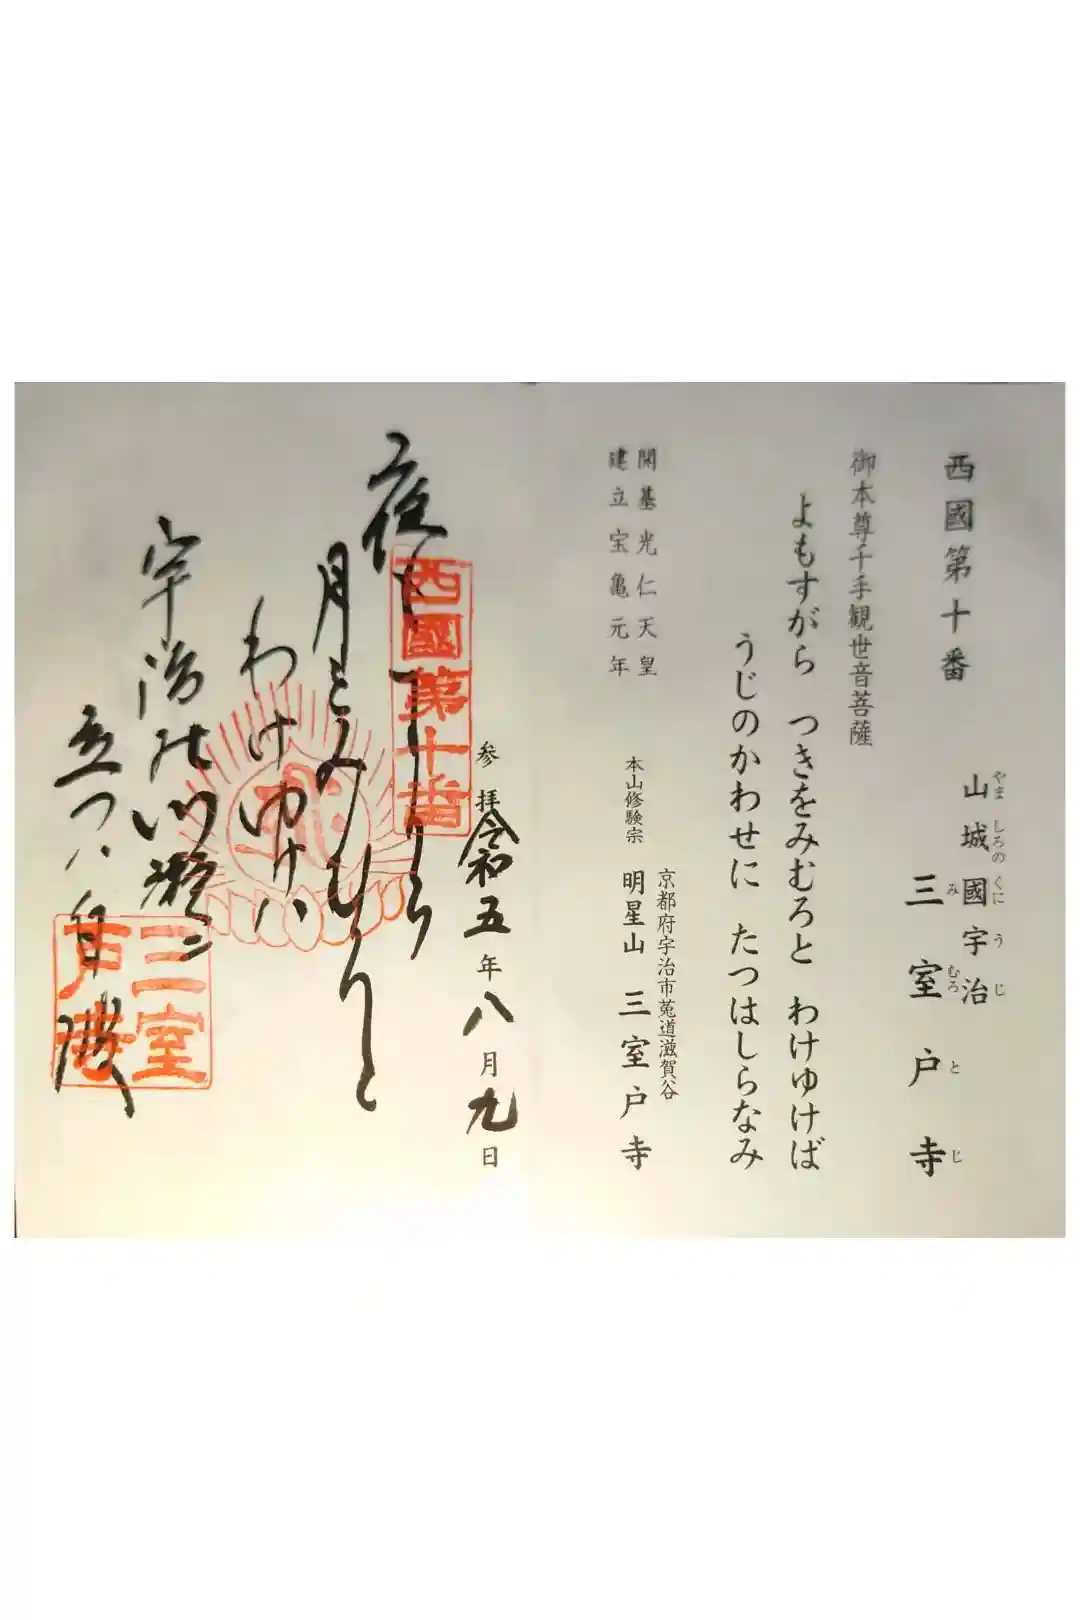 西國第十番
山城國宇治
やましろのくにうじ
三室戸寺
みむろとじ
御本尊千手観世音菩薩
よもすがら つきをみむろと わけゆけば
うじのかわせに たつはしらなみ
開基光仁天皇
建立宝亀元年
京都府宇治市莵道滋賀谷
本山修験宗 明星山 三室戸寺
参拝令和五年八月九日
西國第十番
月とみむろと
わけゆけハ
宇治の川瀬ニ
立つハ白波
三室戸寺